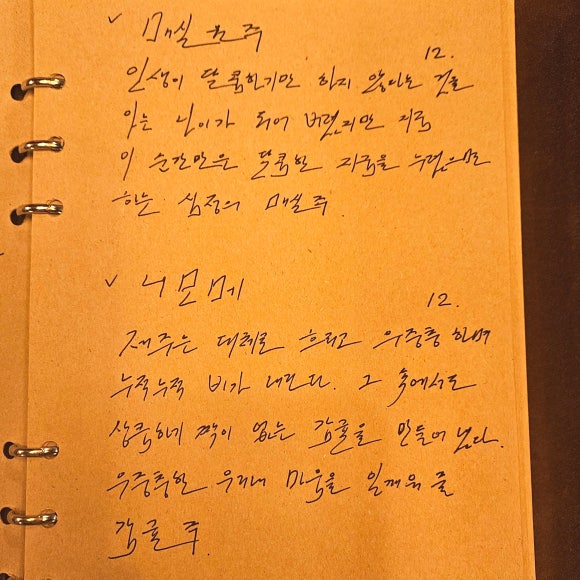 ✓ 매실 원주
12.
인생이 달콤하기만 하지 않다는 것을
아는 나이가 되어 버렸지만 지금
이 순간만은 달콤한 자극을 누렸으면
하는 심정의 매실주
✓ 니모메
12.
제주는 대체로 흐리고 우중충하며
누적누적 비가 내린다. 그 속에서도
상큼하게 짝이 없는 감귤을 만들어 냈다.
우중충한 우리네 마음을 일깨워 줄
감귤주.